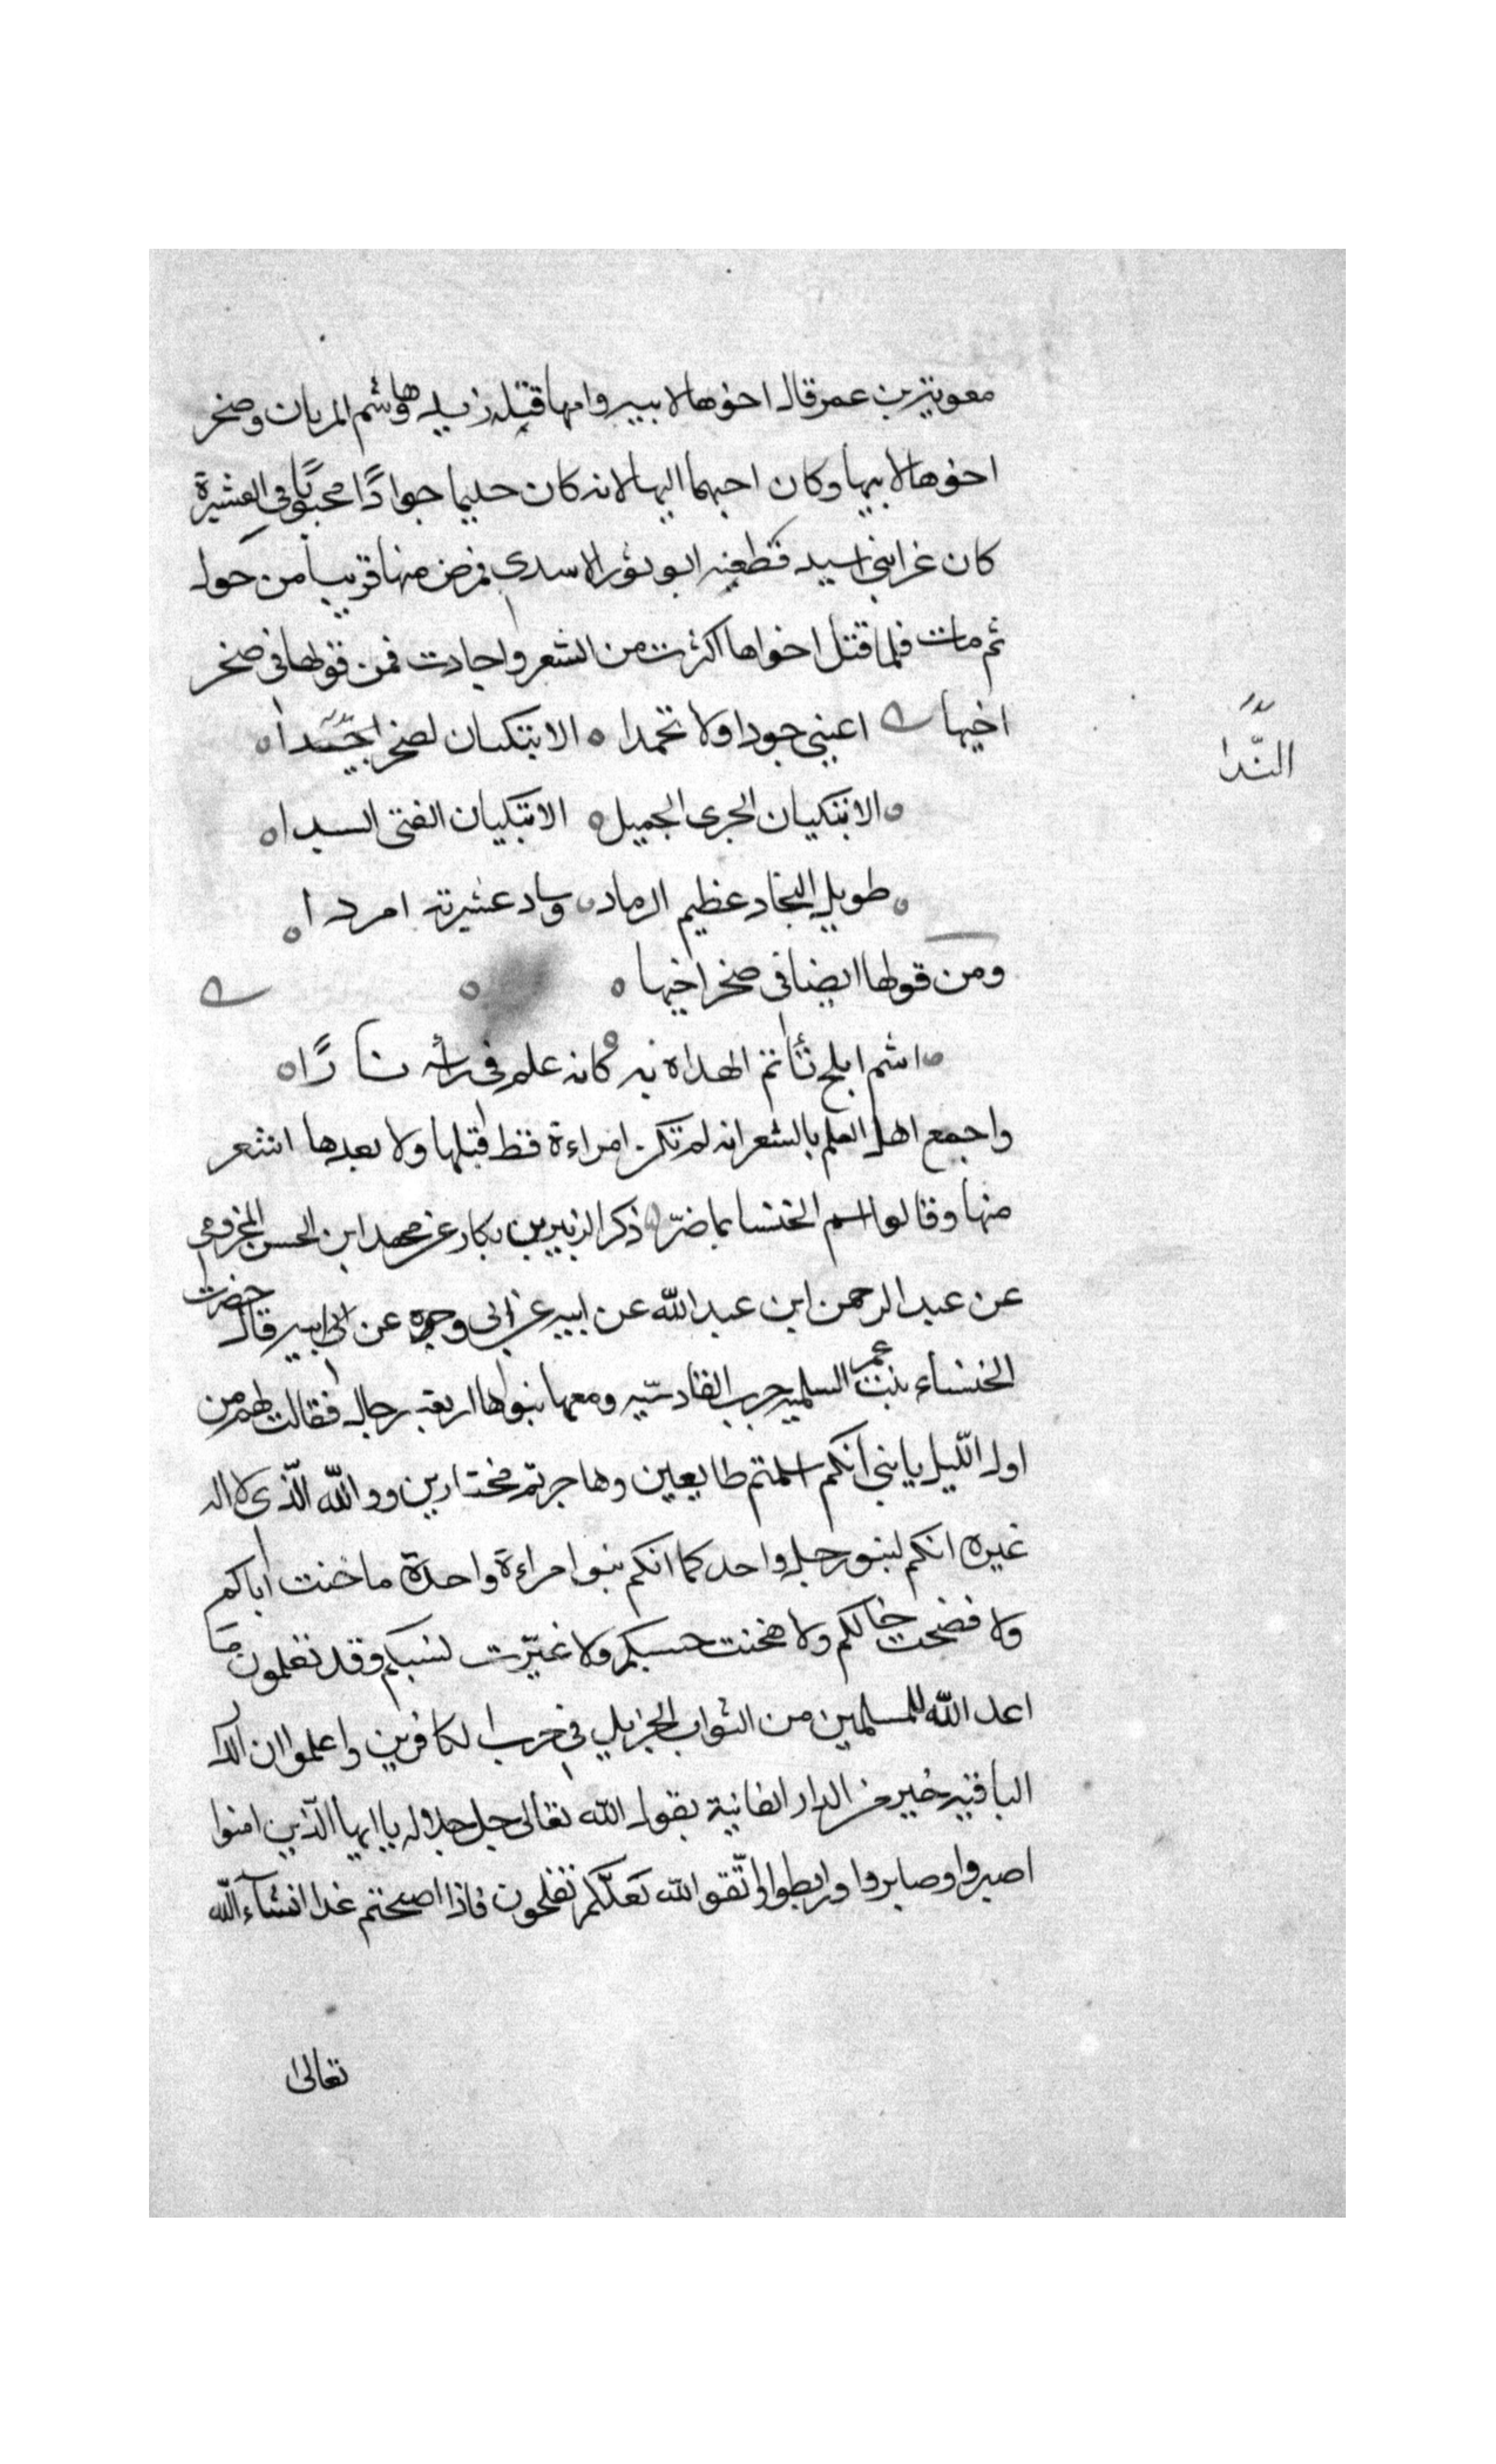 معوية بن عمر قال اخوها لابيه وامها قتله زيد هاوشم المريان وصخر
اخوها لابيها وكان احبهما اليها لانه كان حليما جوادًا محبوبًا في العشيرة
كان غزا بني اسيد فطعنه ابو ثور الاسدي فمرض منها قريبا من حول
ثم مات فلما قتل اخواها اكثرت من الشعر واجادت فمن قولها في صخر
اخيها اعيني جودا ولا تجمدا ه الا تبكيان لصخر اجيدا ه
النّدا
ه الا تبكيان الجرى الجميل ه الا تبكيان الفتى السيدا ه
ه طويل النجاد عظيم الرماد ه وساد عشيرته امردا ه
ومن قولها ايضا في صخر اخيها ه ه
ه اشم ابلج تأتم الهداة به ه كانه علم في رأسه نارًا ه
واجمع اهل العلم بالشعر انه لم تكن امراءة قط قبلها ولا بعدها اشعر
منها وقالوا اسم الخنسا تماضرّ ذكر الزبير بن بكار عن محمد ابن الحسن المخزومي
عن عبد الرحمن ابن عبد الله عن ابيه عن ابي وجزه عن ابي ابيه قال حضرت
الخنساء بنت عمر السلميه حرب القادسّيه ومعها بنوها اربعة رجال فقالت لهم من
اول اللّيل يا بني انكم اسلمتم طايعين وهاجرتم مختارين ووالله الّذي لا اله
غيره انكم لبنو رجل واحد كما انكم بنوا امراءة واحدة ما خنت اباكم
ولا فضحت خالكم ولا هجنت حسبكم ولا غيّرت نسبكم وقد تعلمون ما
اعد الله للمسلمين من الثواب الجزيل في حرب الكافرين واعلموا ان الدار
الباقيه خير من الدار الفانية بقول الله تعالى جل جلاله يا ايها الّذين امنوا
اصبروا وصابروا ورابطوا واتّقو الله لعلّكم تفلحون فاذا اصبحتم غدا انشآء الله
تعالى